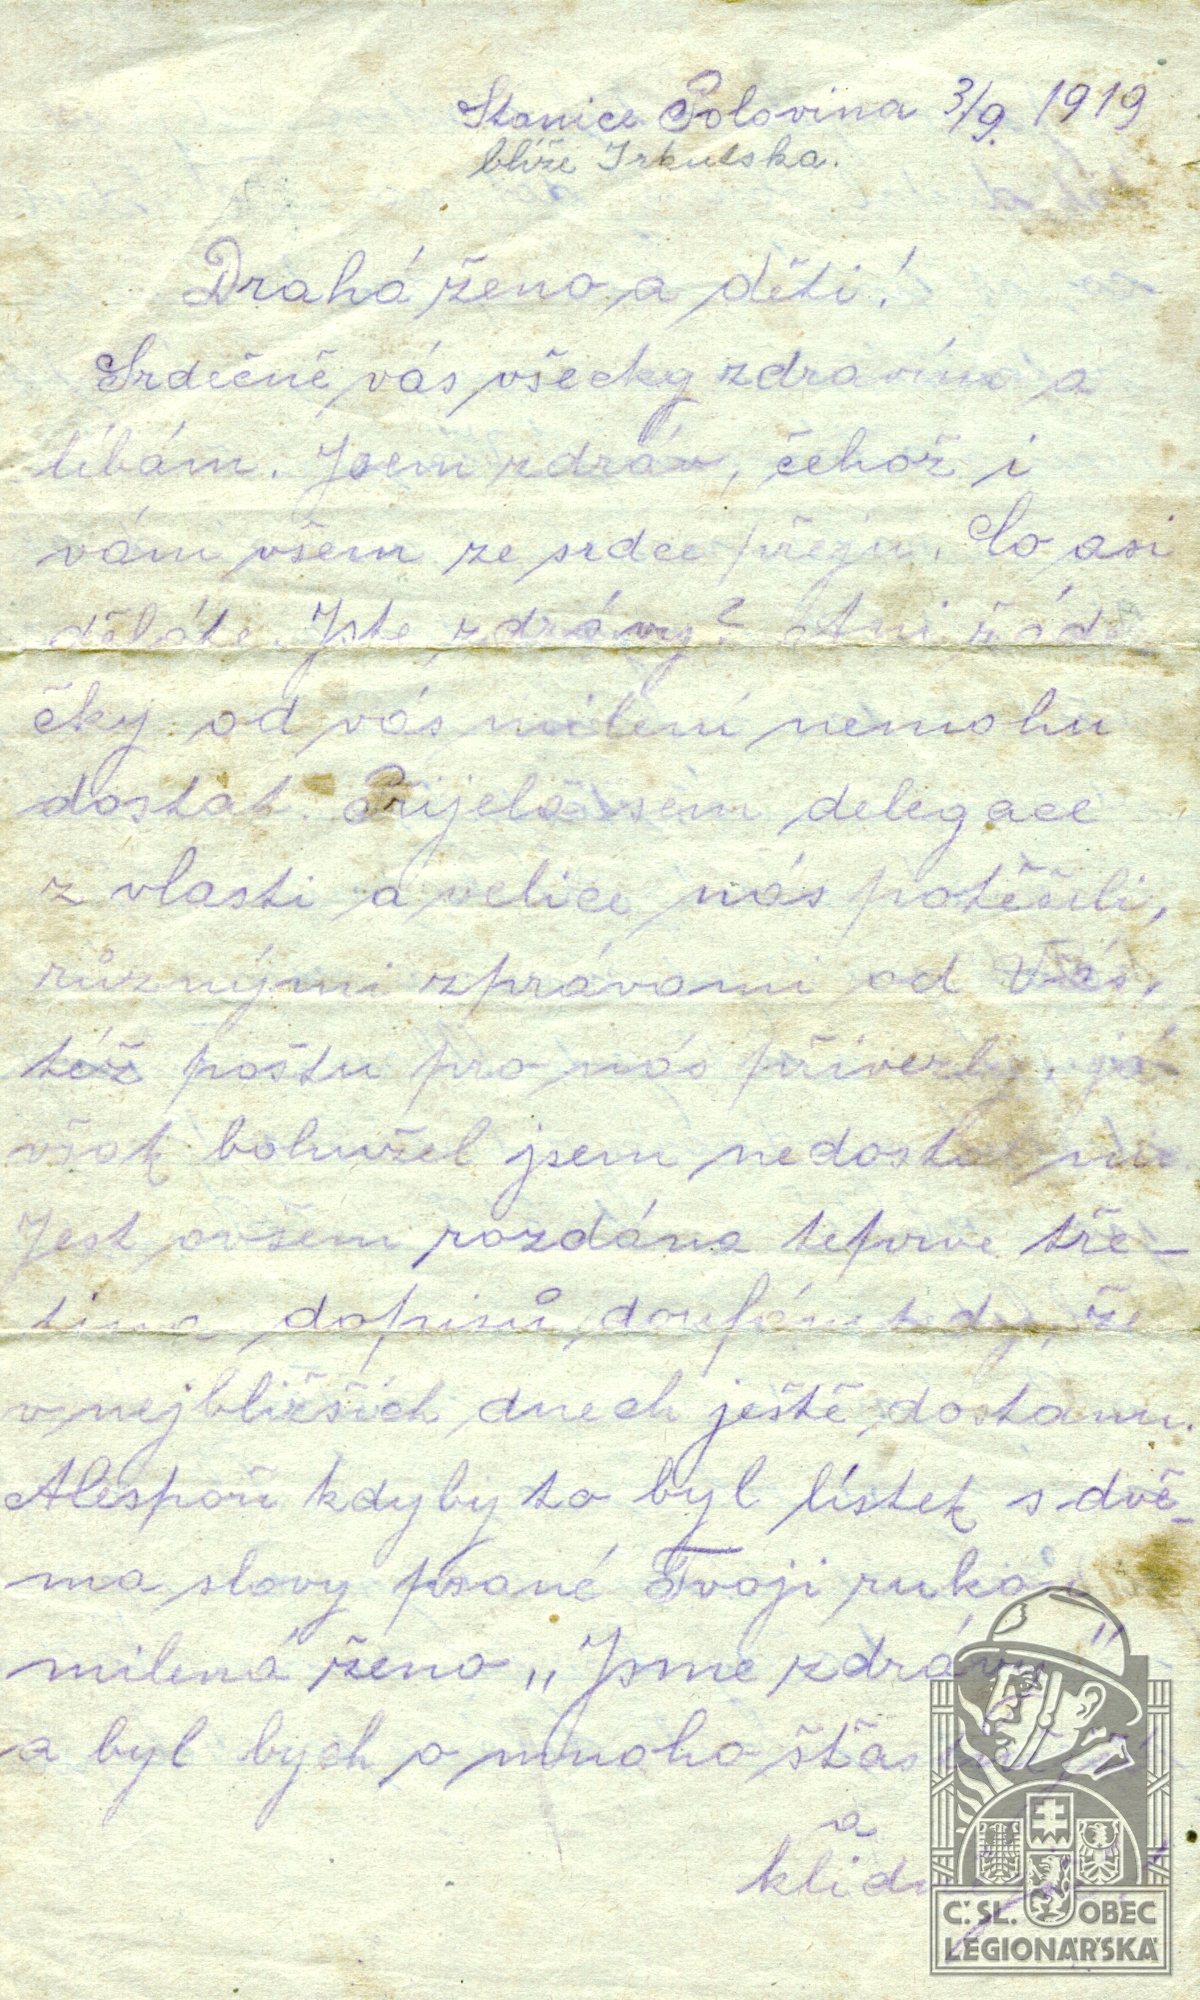 Stanice Polovina 3/9. 1919
blíže Irkutska.
Drahá ženo a děti!
Srdečně vás všecky zdravím a
líbám. Jsem zdráv, čehož i
vám všem ze srdce přeju. Co asi
děláte. Jste zdrávy? Ani řáde
čky od vás milení nemohu
dostat. Přijela sem delegace
z vlasti a velice nás potěšili,
různými zprávami od Vás,
též poštu pro nás přivezly, já
však bohužel jsem nedostal nic.
Jest ovšem rozdána teprve tře-
tina dopisů, doufám tedy, že
v nejbližších dnech ještě dostanu.
Alespoň kdyby to byl lístek s dvě-
ma slovy psané Tvoji rukou
milená ženo „Jsme zdrávy"
a byl bych o mnoho šťastnější
a
klidnější
Č. SL. OBEC
LEGIONÁŘSKÁ